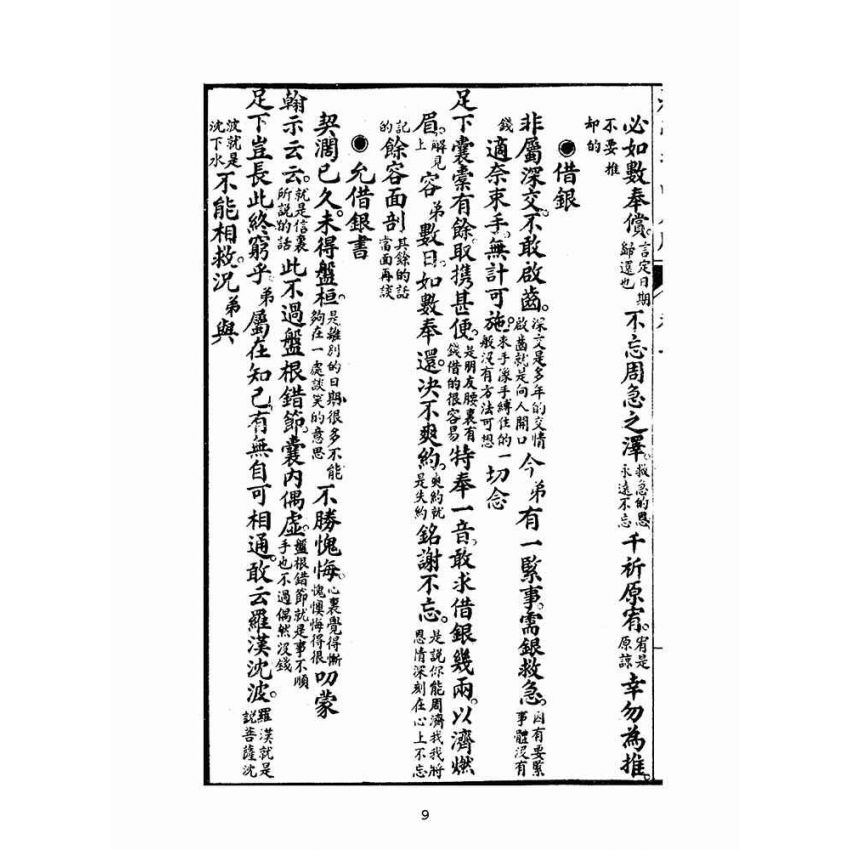 必如數奉償。言定日期歸還也不忘周急之澤。救急的恩永遠不忘千祈原宥。宥是原諒幸勿為推。
不要推却的
◉借銀
非屬深交。不敢啟齒。深交是多年的交情啟齒就是向人開口今弟有一緊事。需銀救急。因有要緊事體沒有
錢適奈束手。無計可施。束手像手縛住的一般沒有方法可想切念
足下囊橐有餘。取携甚便。是朋友腰裏有錢借的很容易特奉一音。敢求借銀幾兩。以濟燃
眉。解見上容弟數日。如數奉還。决不爽約。爽約就是失約銘謝不忘。是說你能周濟我我將恩情深刻在心上不忘
記的餘容面剖其餘的話當面再談
◉允借銀書
契濶已久。未得盤桓。是離別的日期很多不能夠在一處談笑的意思不勝愧悔。心裏覺得慚愧懊悔得很叨蒙
翰示云云。就是信裏所說的話此不過盤根錯節。囊內偶虛。盤根錯節就是事不順手也不過偶然沒錢
足下豈長此終窮乎。弟屬在知己。有無自可相通。敢云羅漢沈波。羅漢就是說菩薩沈
波就是沈下水不能相救。況弟與
9